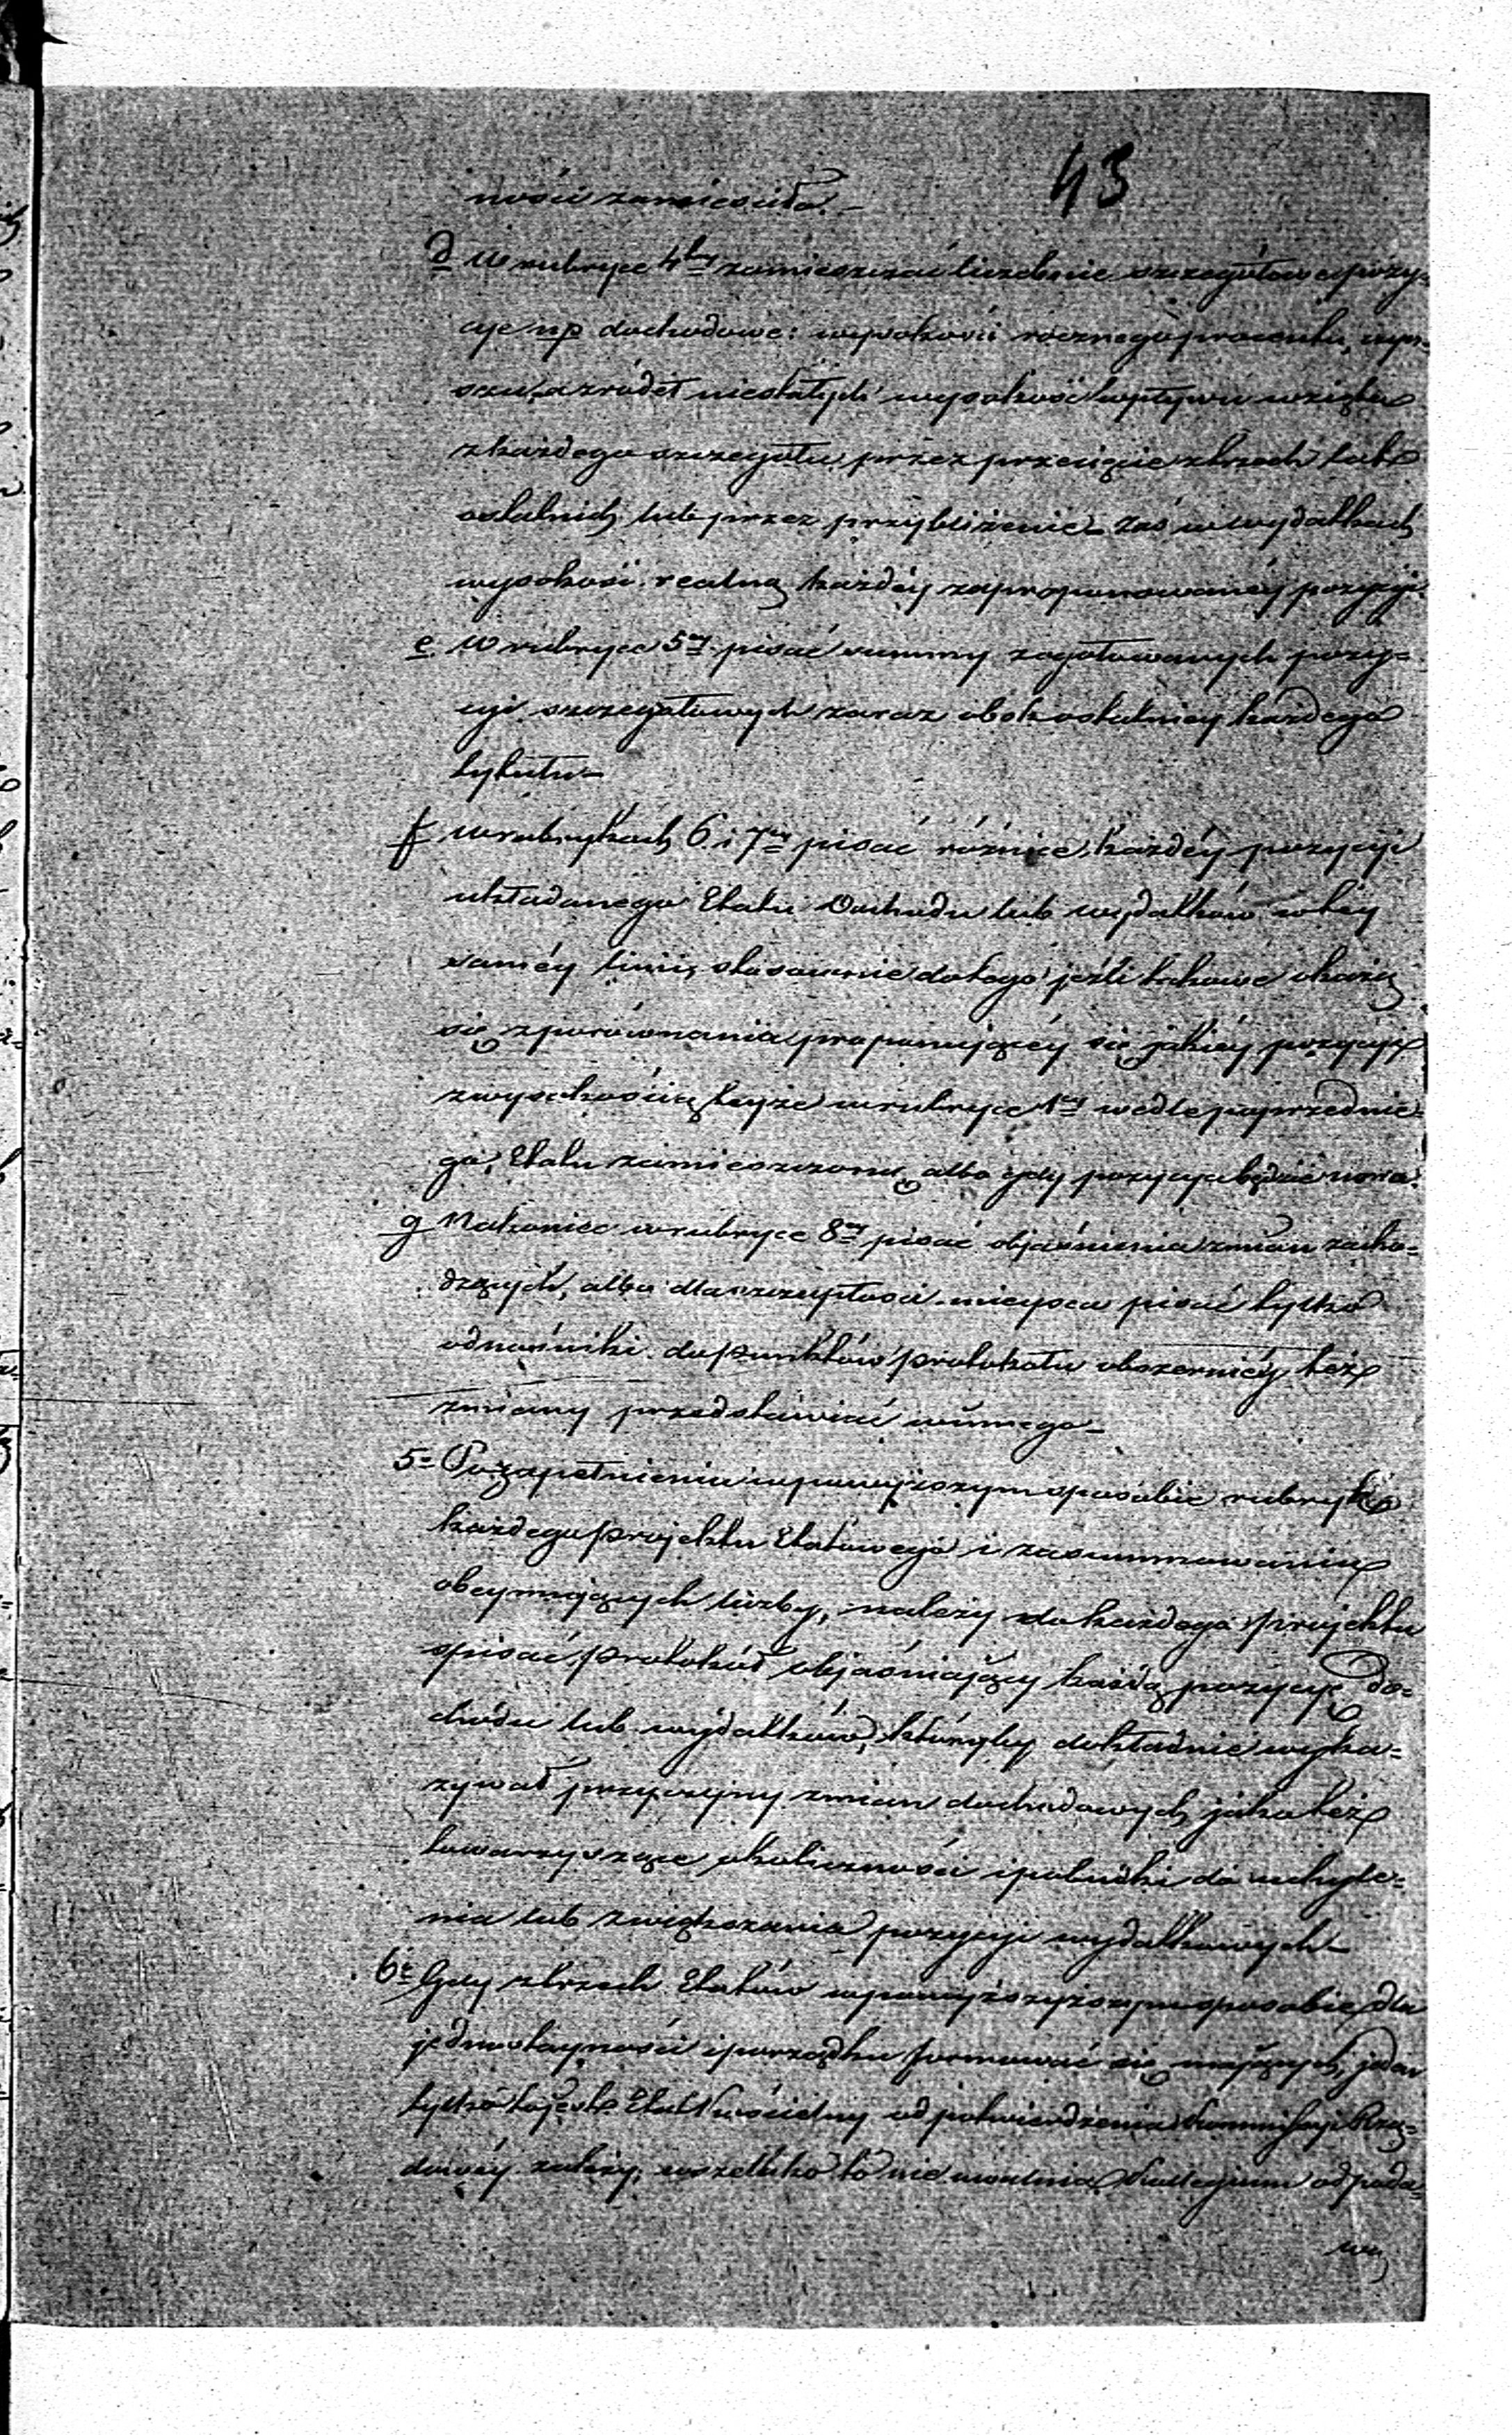 43
ności zamieściła. –
d W rubryce 4tey zamieszczać liczebnie szczegółowe pozy=
cje np dochodowe: wysokość rocznego procentu, czyn=
szu, a zródeł niestałych wysokość wpływu wziętą
z każdego szczegółu przez przecięcie z trzech lat
ostatnich lub przez przybliżenie – zaś w wydatkach
wysokość realną każdéy zaproponowanéy pozycyi.
e W rubryce 5éy pisać summy zogółowanych pozy=
cyi szczegółowych zaraz obok ostatniey każdego
tytułu –
f W rubrykach 6 i 7éy pisać różnice, każdéy pozycyi
układanego Etatu Dochodu lub wydatków w téy
saméy linii, stosownie do tego jeżli takowe okażą
się z porównania proponującéy się jakiéy pozycyi
z wysokością teyże w rubryce 1éy wedle poprzednie
go, Etatu zamieszczoną albo gdy pozycya będzie nowa.
g Nakoniec w rubryce 8éy pisać objaśnienia zmian zacho=
dzących, albo dla szczupłości mieysca pisać tylko
odnośniki do punktów protokołu obszerniéy też
zmiany przedstawiać winnego –
5= Po zapełnieniu w powyższym sposobie rubryk
każdego projektu Etatowego i zasummowaniu
obeymujących liczby, należy do każdego projektu
spisać protokół objaśniający każdą pozycyę Do=
chodu lub wydatków, któryby dokładnie wyka=
zywał przyczyny zmian dochodowych jako też
towarzyszące okoliczności i pobudki do uchyle=
nia lub zwiększania pozycyi wydatkowych –
6= Gdy z trzech Etatów w sposobie dla
jednostayności i porządku formować się mających, jeden
tylko to jest Etat Kościelny od potwierdzenia Kommissyi Rzą=
dowéy zależy, wszelako to nie uwalnia Kollegium od poda=
wa